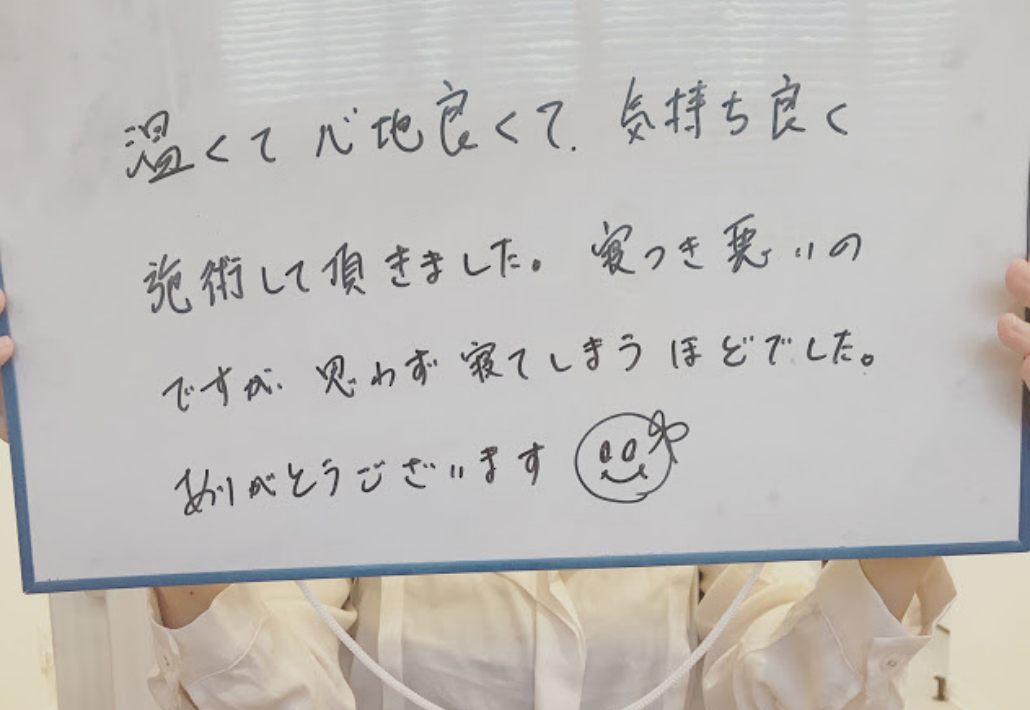 温くて心地良くて、気持ち良く
施術して頂きました。寝つき悪いの
ですが、思わず寝てしまうほどでした。
ありがとうございます